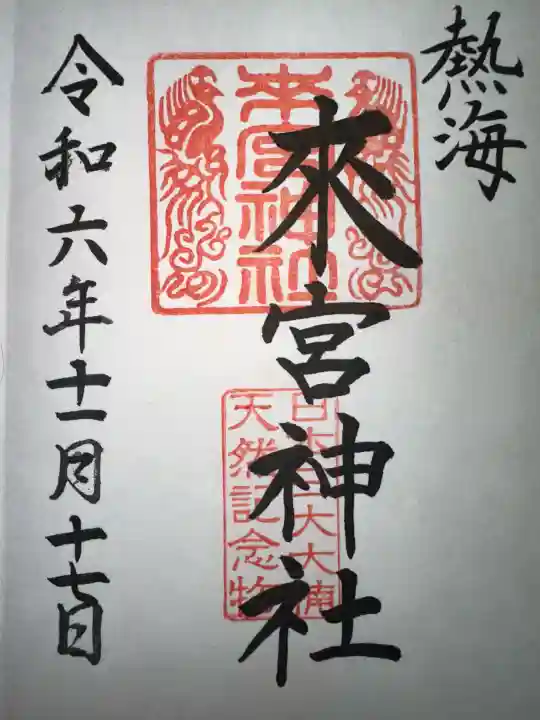 熱海
來宮神社
來宮神社
日本三大大楠
天然記念物
令和六年十一月十七日